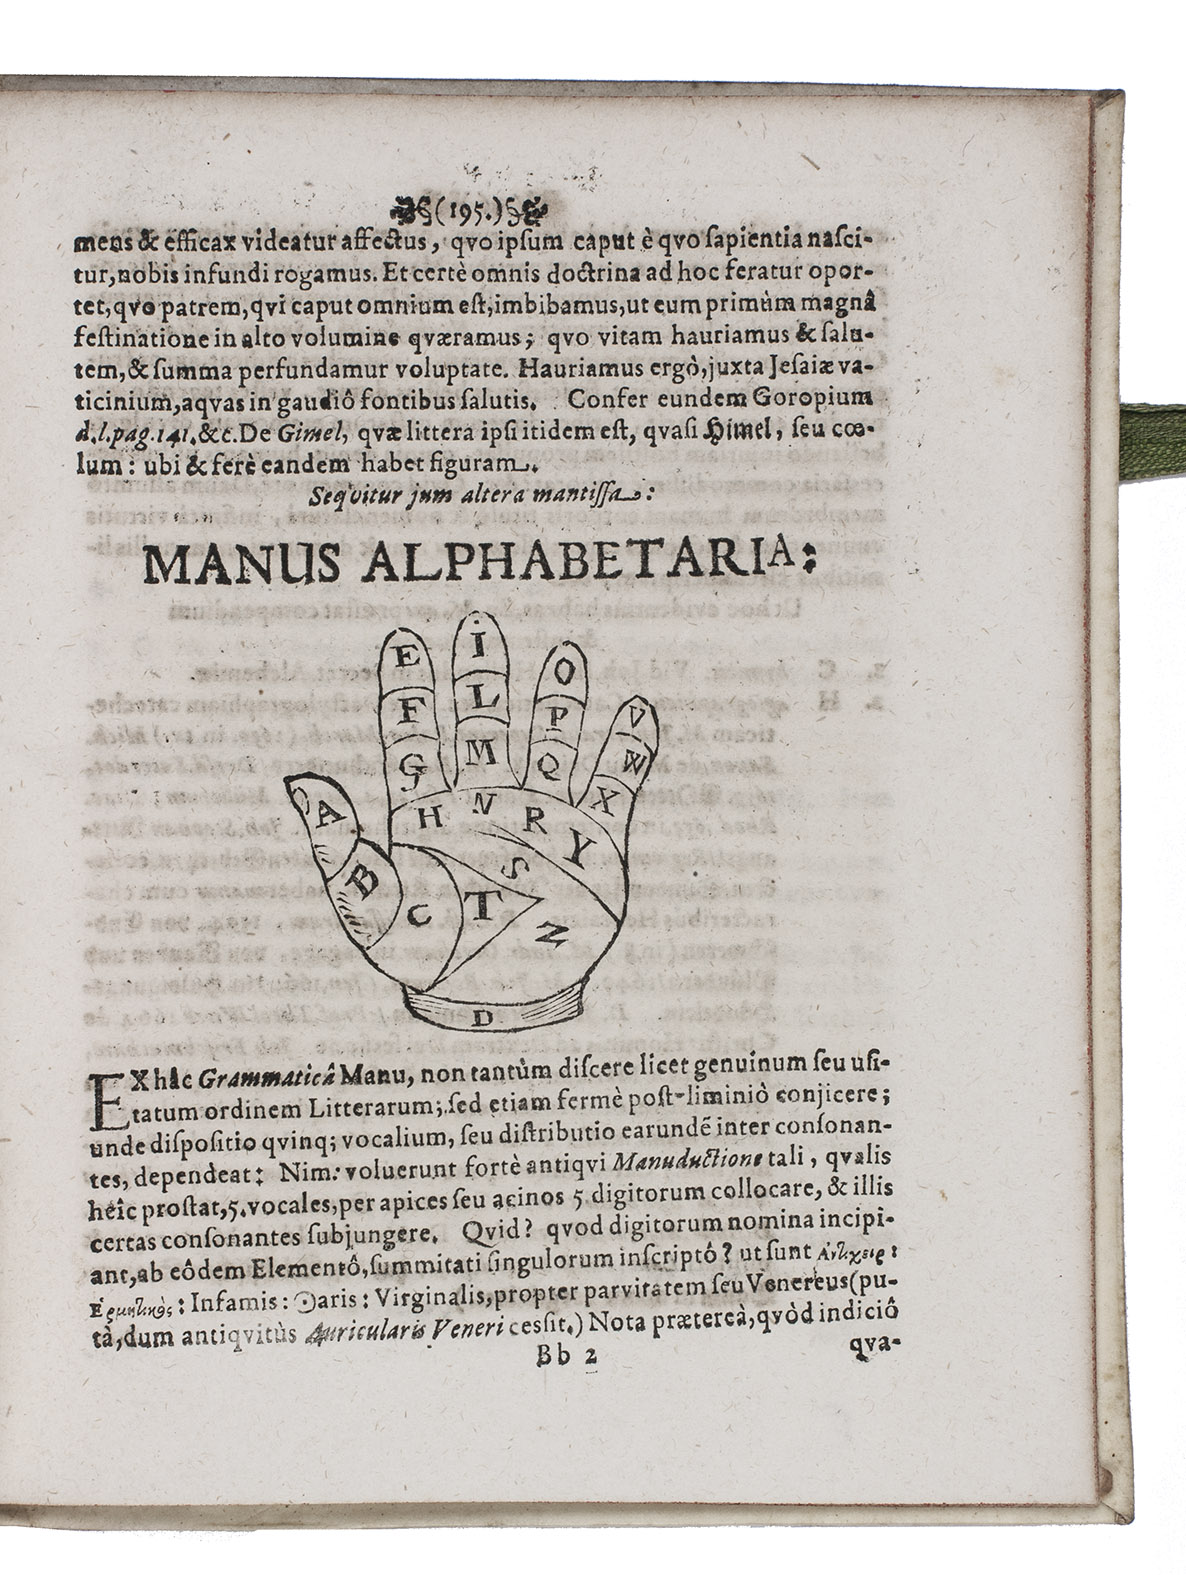 (195.)
mens & efficax videatur affectus, qvo ipſum caput è qvo ſapientia naſci-
tur, nobis infundi rogamus. Et certè omnis doctrina ad hoc feratur opor-
tet, qvo patrem, qvi caput omnium eſt, imbibamus, ut eum primùm magnâ
feſtinatione in alto volumine qværamus; qvo vitam hauriamus & ſalu-
tem, & ſumma perfundamur voluptate. Hauriamus ergò, juxta Jeſaiæ va-
ticinium, aqvas in gaudiô fontibus ſalutis. Confer eundem Goropium
d. l. pag. 141. &c. De Gimel, qvæ littera ipſi itidem eſt, qvaſi Himel, ſeu cœ-
lum: ubi & ferè eandem habet figuram.
Seqvitur jum altera mantiſſa:
MANUS ALPHABETARIA:
E I O V
F L P W
G M Q X
A H N R Y
B C T S Z
D
EX hâc Grammaticâ Manu, non tantùm diſcere licet genuinum ſeu uſi-
tatum ordinem Litterarum; ſed etiam fermè poſt-liminiò conjicere;
unde diſpoſitio qvinq; vocalium, ſeu diſtributio earundẽ inter conſonan-
tes, dependeat: Nim: voluerunt fortè antiqvi Manuductione tali, qvalis
heîc proſtat, 5. vocales, per apices ſeu acinos 5 digitorum collocare, & illis
certas conſonantes ſubjungere. Qvid? qvod digitorum nomina incipi-
ant, ab eôdem Elementô, ſummitati ſingulorum inſcriptô? ut ſunt Ἀντίχειρ:
: Infamis: ☉aris: Virginalis, propter parvitatem ſeu Venereus (pu-
tà, dum antiqvitùs Auricularis Veneri ceſſit.) Nota prætereà, qvòd indiciô
Bb 2 qva-